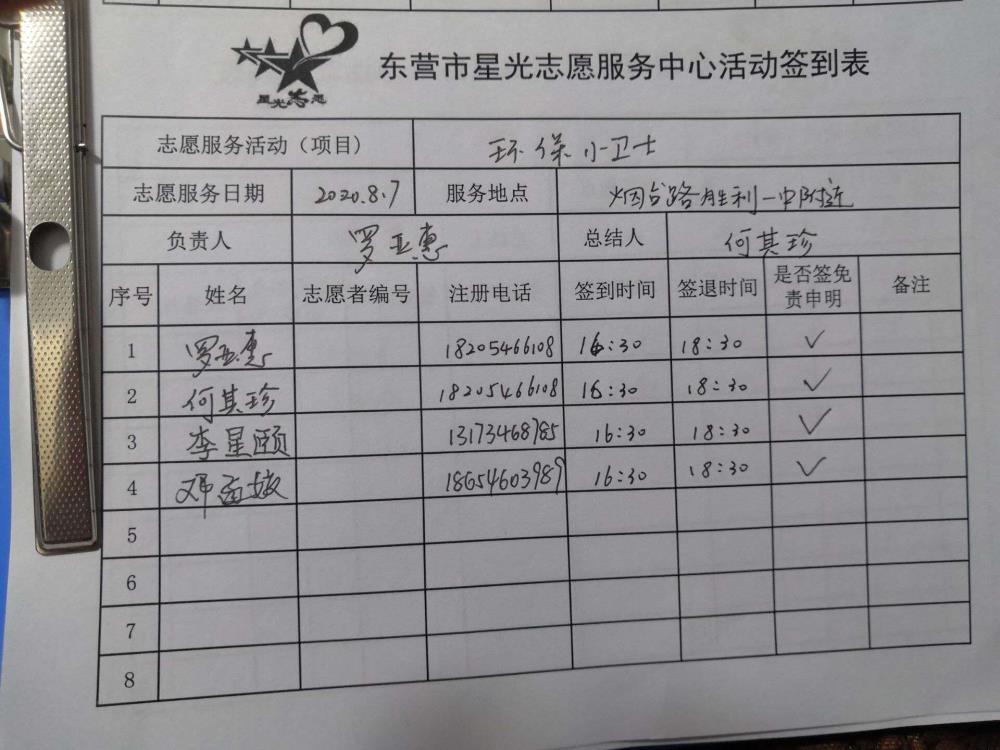 星光志愿
东营市星光志愿服务中心活动签到表
志愿服务活动（项目） 环保小卫士
志愿服务日期 2020.8.7 服务地点 烟台路胜利一中附近
负责人 罗亚惠 总结人 何其珍
序号 姓名 志愿者编号 注册电话 签到时间 签退时间 是否签免责申明 备注
1 罗亚惠 18205466108 16:30 18:30 ✓
2 何其珍 18205466108 16:30 18:30 ✓
3 李星颐 13173468785 16:30 18:30 ✓
4 邓 18654603989 16:30 18:30 ✓
5
6
7
8